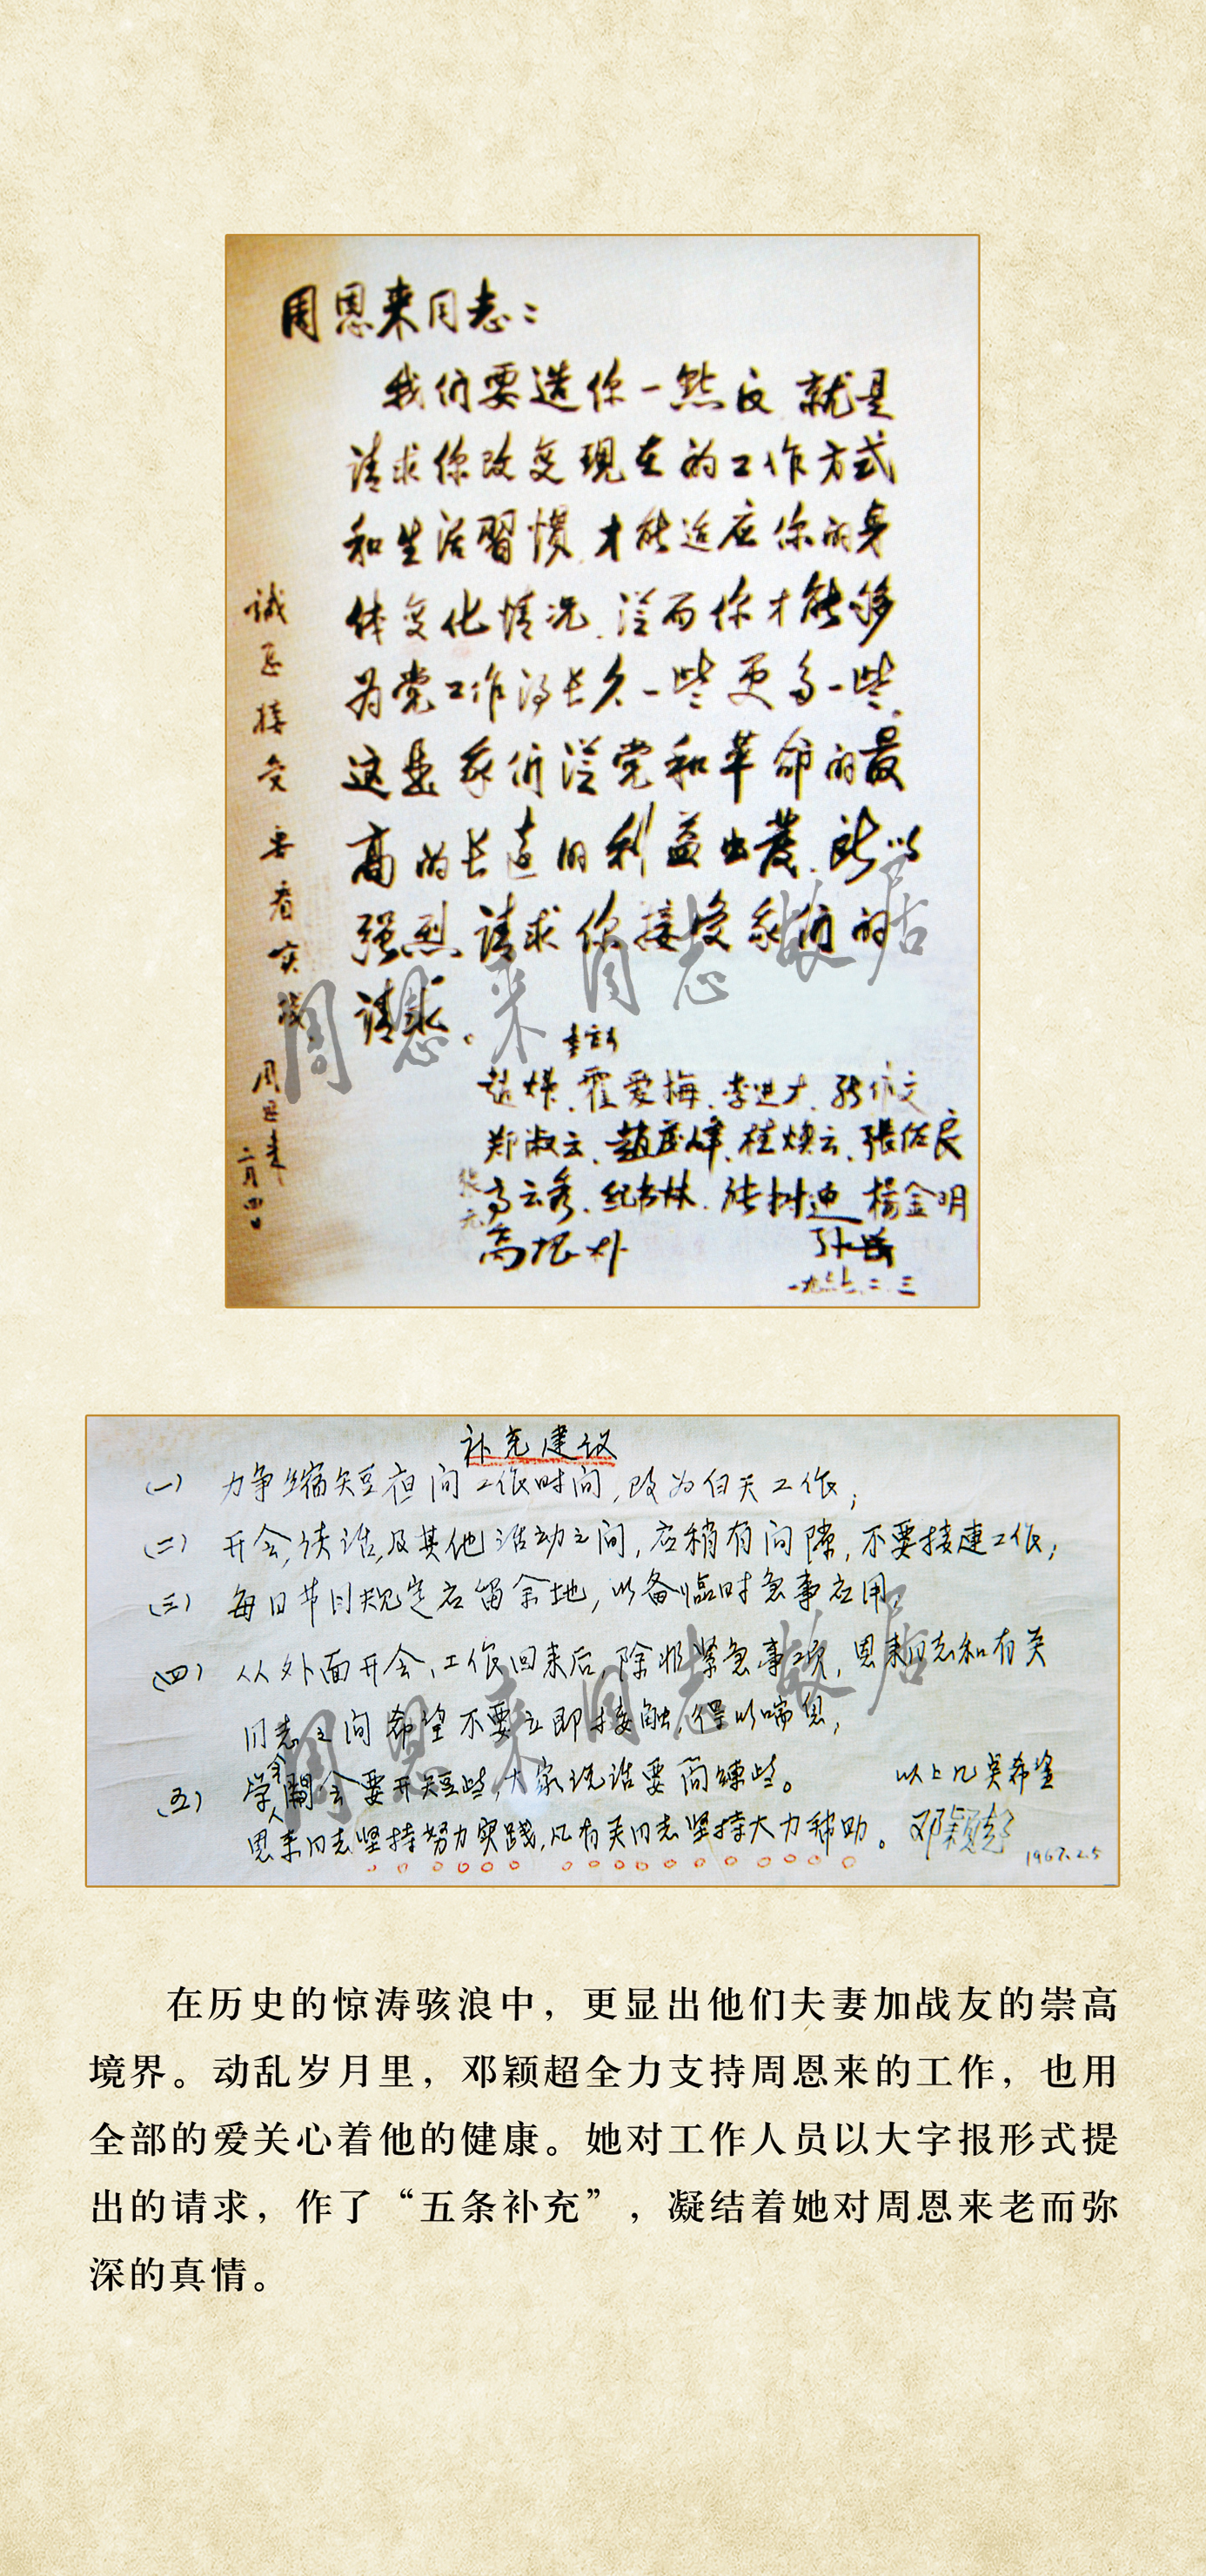 周恩来同志：
我们要造你一点反，就是
请求你改变现在的工作方式
和生活習慣，才能适应你的身
体变化情况，从而你才能够
为党工作得长久一些，更多一些。
这是我们从党和革命的最
高的长远的利益出发，所以
强烈请求你接受我们的
请求。
诚恳接受 要看实践
周恩来
二月四日
赵炜、霍爱梅、李进才、张作文
郑淑云、赵茂峰、桂焕云、張佐良
张元
高云秀、纪书林、张树迎 楊金明
高振朴 孙岳
一九六七.二.三
周恩来同志故居
补充建议
（一） 力争缩短夜间工作时间，改为白天工作；
（二） 开会，谈话，及其他活动之间，应稍有间隙，不要接连工作；
（三） 每日节目规定应留余地，以备临时急事应用；
（四） 从外面开会、工作回来后，除非紧急事项，恩来同志和有关
同志之间希望不要立即接触，得以喘息，
（五） 学会开会要开短些，大家说话要简练些。 以上几点希望
恩来同志坚持努力实践，凡有关同志坚持大力帮助。 邓颖超
1967.2.5
周恩来同志故居
在历史的惊涛骇浪中，更显出他们夫妻加战友的崇高
境界。动乱岁月里，邓颖超全力支持周恩来的工作，也用
全部的爱关心着他的健康。她对工作人员以大字报形式提
出的请求，作了“五条补充”，凝结着她对周恩来老而弥
深的真情。